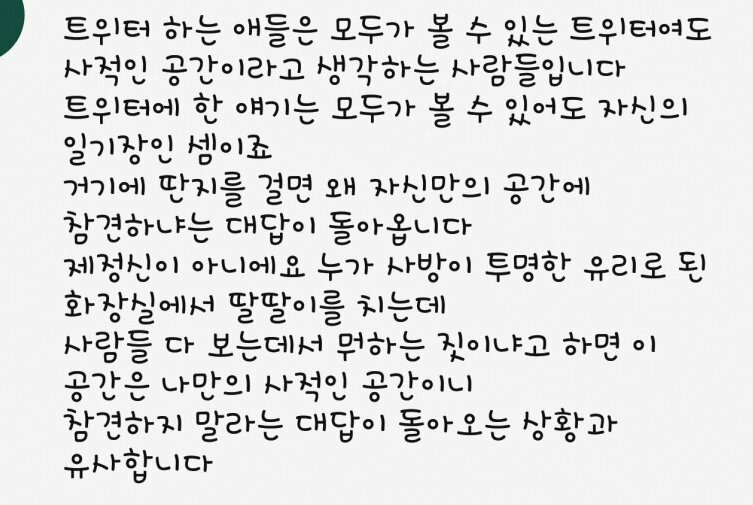 트위터 하는 애들은 모두가 볼 수 있는 트위터여도
사적인 공간이라고 생각하는 사람들입니다
트위터에 한 얘기는 모두가 볼 수 있어도 자신의
일기장인 셈이죠
거기에 딴지를 걸면 왜 자신만의 공간에
참견하냐는 대답이 돌아옵니다
제정신이 아니에요 누가 사방이 투명한 유리로 된
화장실에서 딸딸이를 치는데
사람들 다 보는데서 뭐하는 짓이냐고 하면 이
공간은 나만의 사적인 공간이니
참견하지 말라는 대답이 돌아오는 상황과
유사합니다